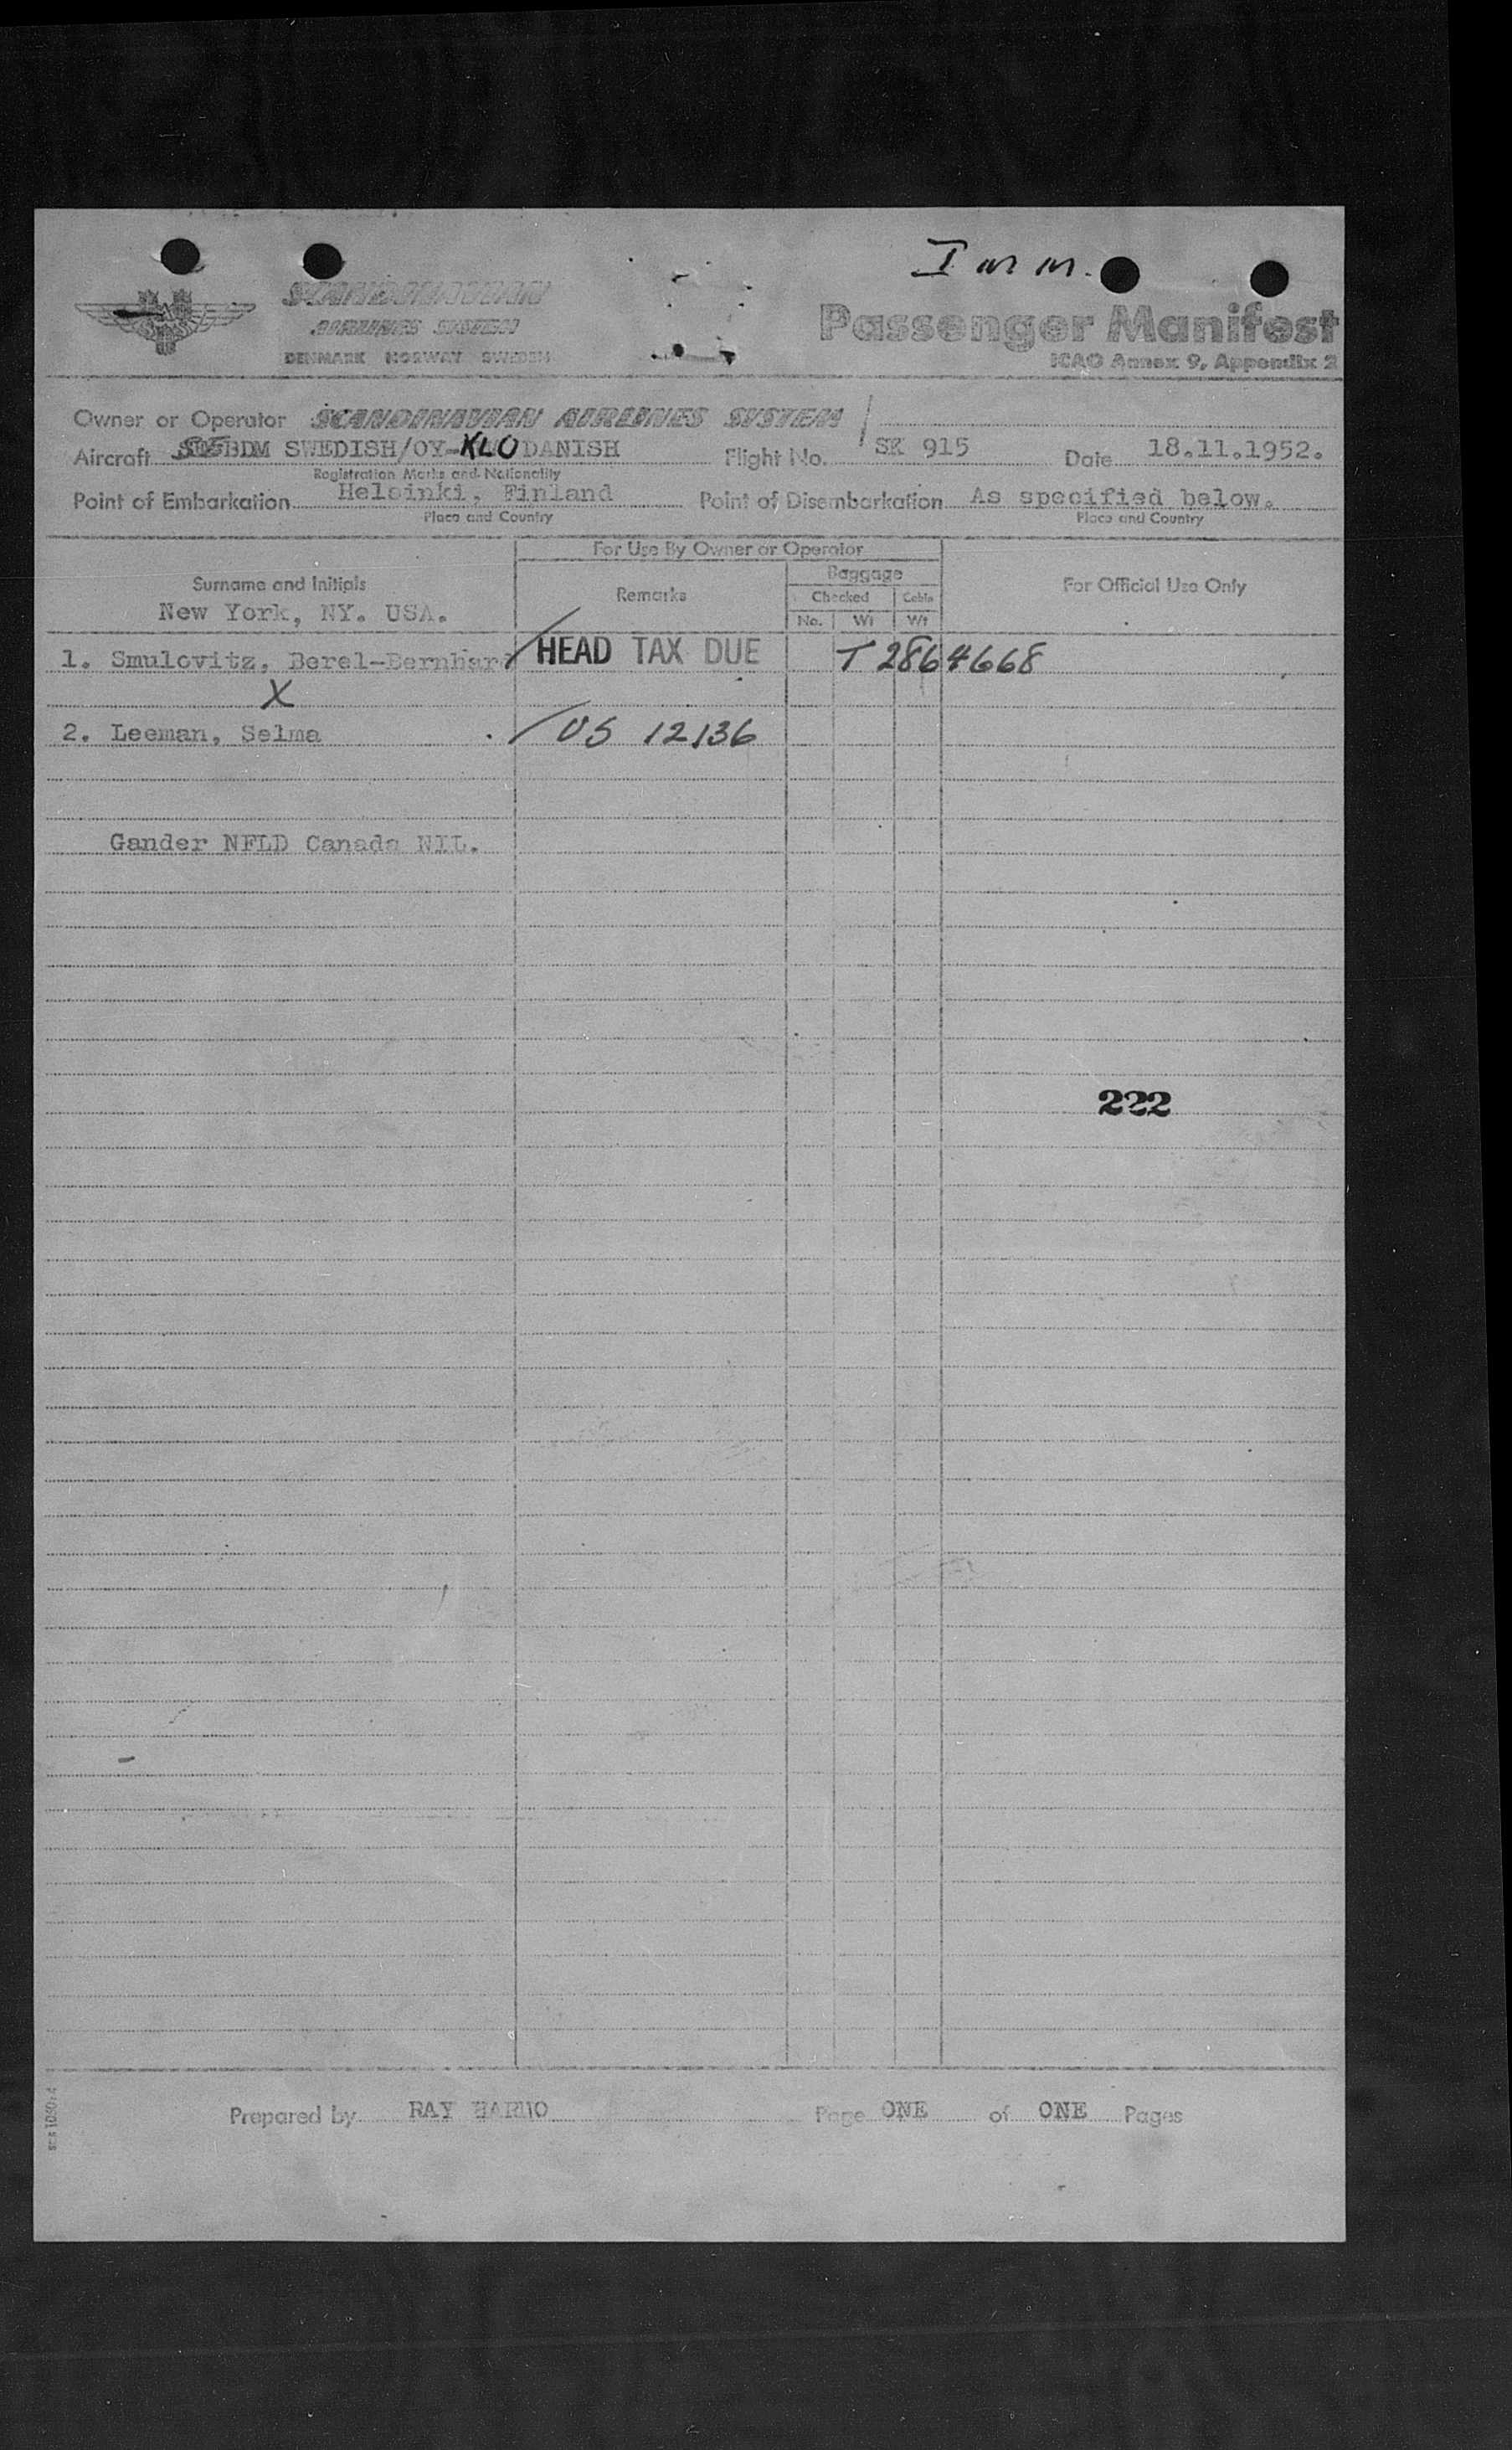 Imm.
SCANDINAVIAN
AIRLINES SYSTEM
DENMARK NORWAY SWEDEN
Passenger Manifest
ICAO Annex 9, Appendix 2
Owner or Operator SCANDINAVIAN AIRLINES SYSTEM
Aircraft BDM SWEDISH/OY-KLO DANISH Flight No. SK 915 Date 18.11.1952.
Registration Marks and Nationality
Point of Embarkation Helsinki, Finland Point of Disembarkation As specified below.
Place and Country Place and Country
For Use By Owner or Operator
Surname and Initials Remarks Baggage For Official Use Only
Checked Cabin
No. Wt Wt
New York, NY. USA.
1. Smulovitz, Berel-Bernhard HEAD TAX DUE T 2864668
X
2. Leeman, Selma US 12136
Gander NFLD Canada NIL.
222
Prepared by RAY Page ONE of ONE Pages